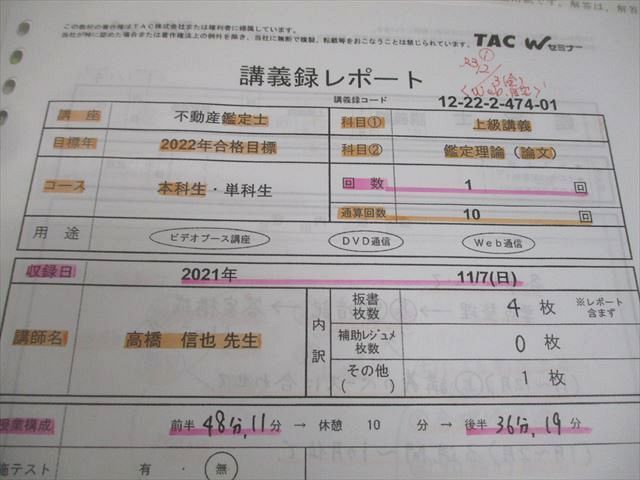 この教材の著作権はTAC株式会社または権利者に帰属しています。
当社が特に認めた場合または著作権法上の例外を除き、当社に無断で複製、転載等をおこなうことは禁じられています。
TAC Wセミナー
講義録レポート
講義録コード 12-22-2-474-01
講座 不動産鑑定士 科目① 上級講義
目標年 2022年合格目標 科目② 鑑定理論（論文）
コース 本科生・単科生 回数 1 回
通算回数 10 回
用途 ビデオブース講座 DVD通信 Web通信
収録日 2021年 11/7(日)
講師名 高橋 信也 先生 内訳 板書枚数 4 枚 ※レポート含まず
補助レジュメ枚数 0 枚
その他( ) 1 枚
授業構成 前半 48分,11分 → 休憩 10 分 → 後半 36分,19分
施テスト 有 ・ 無